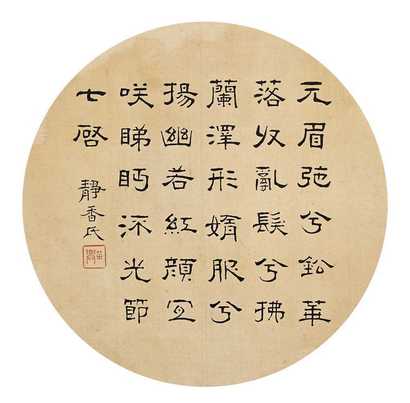 元眉弛兮鈆華
落收亂髮兮拂
蘭澤形媠服兮
揚幽若紅顏宜
咲睇眄流光節
七啓
靜香氏